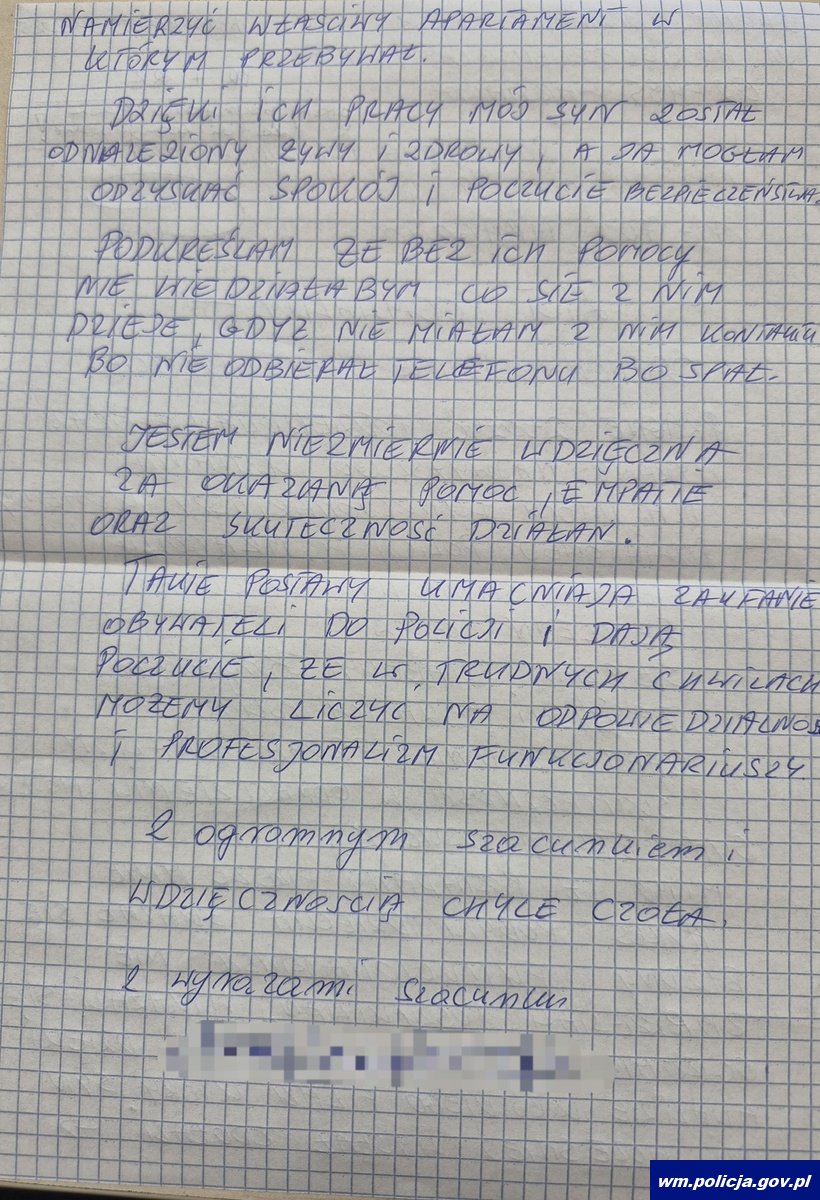 NAMIERZYĆ WŁAŚCIWY APARTAMENT W
KTÓRYM PRZEBYWAŁ.
DZIĘKI ICH PRACY MÓJ SYN ZOSTAŁ
ODNALEZIONY ŻYWY I ZDROWY, A JA MOGŁAM
ODZYSKAĆ SPOKÓJ I POCZUCIE BEZPIECZEŃSTWA.
PODKREŚLAM ŻE BEZ ICH POMOCY
NIE WIEDZIAŁABYM CO SIĘ Z NIM
DZIEJE, GDYŻ NIE MIAŁAM Z NIM KONTAKTU
BO NIE ODBIERAŁ TELEFONU BO SPAŁ.
JESTEM NIEZMIERNIE WDZIĘCZNA
ZA OKAZANĄ POMOC, EMPATIĘ
ORAZ SKUTECZNOŚĆ DZIAŁAŃ.
TAKIE POSTAWY UMACNIAJĄ ZAUFANIE
OBYWATELI DO POLICJI I DAJĄ
POCZUCIE, ŻE W TRUDNYCH CHWILACH
MOŻEMY LICZYĆ NA ODPOWIEDZIALNOŚ
I PROFESJONALIZM FUNKCJONARIUSZY.
Z ogromnym szacunkiem i
WDZIĘCZNOŚCIĄ CHYLĘ CZOŁA.
Z wyrazami szacunku
wm.policja.gov.pl